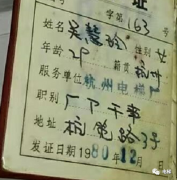 字第163号
姓名 吴慧玲 性别 女
年龄 28 籍贯 杭州
服务单位 杭州电梯厂
职别 厂丁干部
地址 杭 路3号
发证日期1980年12月 日